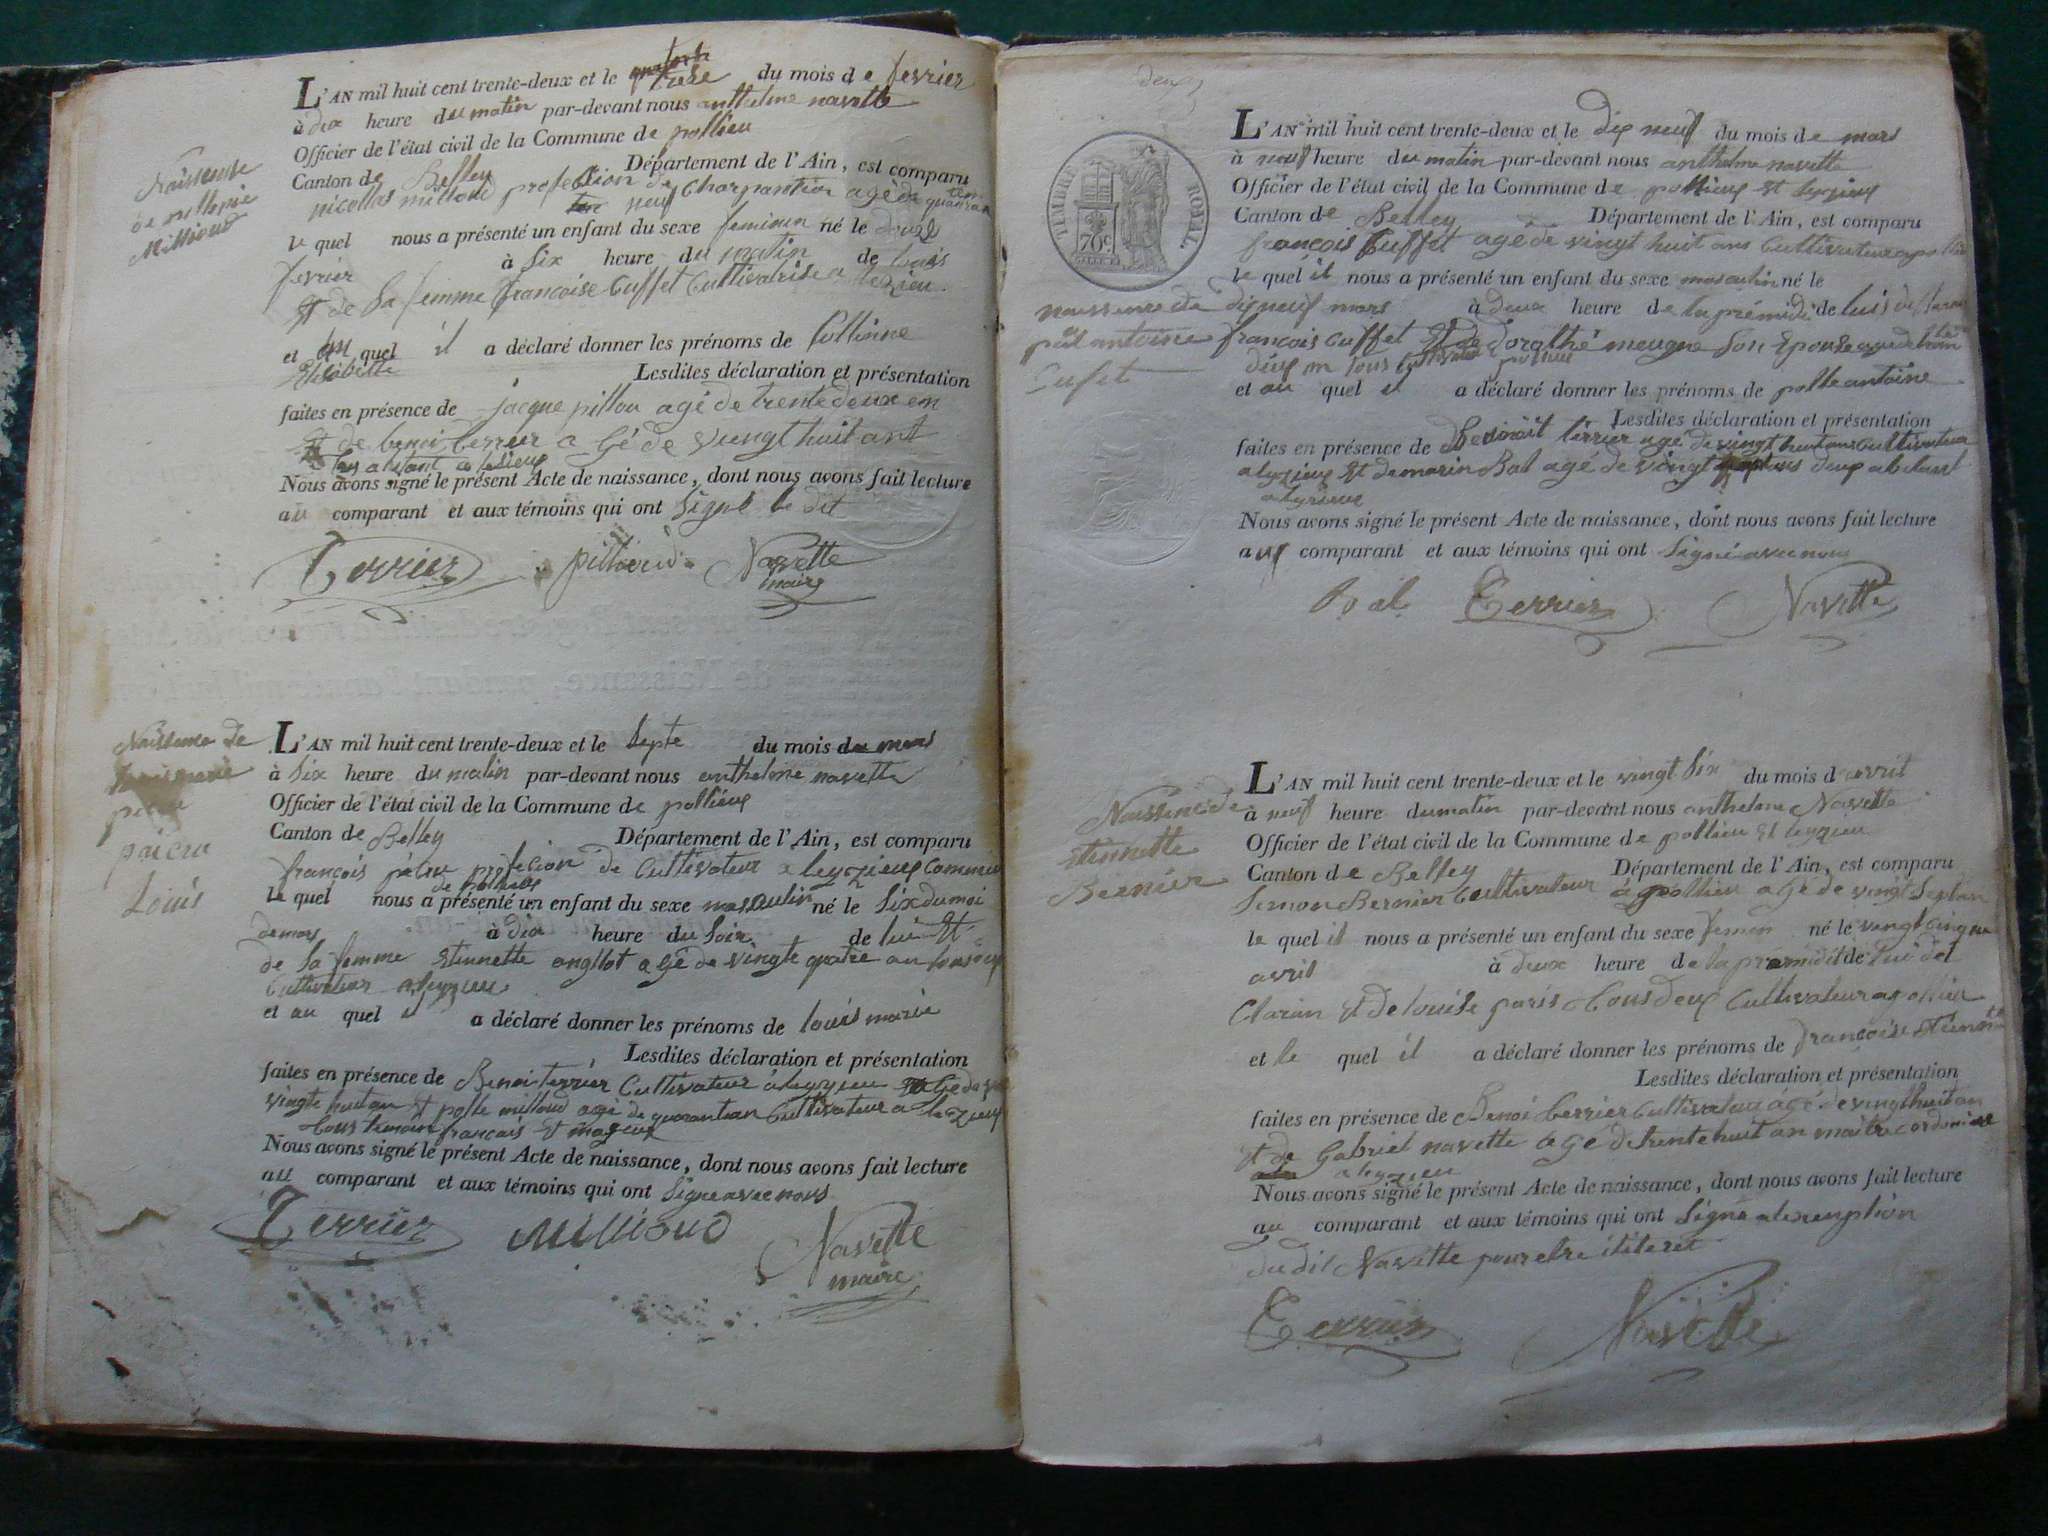 L'AN mil huit cent trente-deux et le treise du mois de fevrier
à dix heure du matin par-devant nous anthelme navette
Officier de l'état civil de la Commune de pollieu
Canton de Belley Département de l'Ain, est comparu
nicollas millioud profession de Charpantier agé de
le quel nous a présenté un enfant du sexe feminin né le douze
fevrier à six heure du matin de
et de sa femme francoise Cuffet Cultivatrise a
et au quel il a déclaré donner les prénoms de
Lesdites déclaration et présentation
faites en présence de jacque pillou agé de trente deux em
et de benoi terrier a gé de vingt huit ant
Nous avons signé le présent Acte de naissance, dont nous avons fait lecture
au comparant et aux témoins qui ont signé le dit
Terrier Navette
maire
Naissance de
L'AN mil huit cent trente-deux et le septe du mois du mars
à six heure du matin par-devant nous anthelme navette
Officier de l'état civil de la Commune de pollieux
Canton de Belley Département de l'Ain, est comparu
françois profecion de Cultivateur a leyzieux Commune
de pollieux
le quel nous a présenté un enfant du sexe masculin né le six du moi
de mars à dix heure du soir de lui et
de sa femme etiennette angllot a gé de vingte quatre an
Cultivateur a leyzieu
et au quel il a déclaré donner les prénoms de louis marie
Lesdites déclaration et présentation
faites en présence de Benoi terrier Cultivateur à leyzieu
vingte huit an et polle millioud agé de quarantan Cultivateur a
tous temoin francais et mageux
Nous avons signé le présent Acte de naissance, dont nous avons fait lecture
au comparant et aux témoins qui ont signe avec nous
Terrier Millioud Navette
maire
Louis
deux
TIMBRE ROYAL
70c
L'AN mil huit cent trente-deux et le dix neuf du mois de mars
à neuf heure du matin par-devant nous anthelme navette
Officier de l'état civil de la Commune de pollieux et leyzieux
Canton de Belley Département de l'Ain, est comparu
françois Cuffet agé de vingt huit ans Cultivateur
le quel il nous a présenté un enfant du sexe masculin né le
dix neuf mars à deux heure de la prémidi de
françois Cuffet et de dorothé meugne son Epouse agé de
et au quel il a déclaré donner les prénoms de polle antoine
Lesdites déclaration et présentation
faites en présence de Benoit terrier agé de vingt huit ans Cultivateur
a leyzieux et de marin Bal agé de vingt deux abitant
a leyzieux
Nous avons signé le présent Acte de naissance, dont nous avons fait lecture
aux comparant et aux témoins qui ont signé avec nous
Bal Terrier Navette
naissance de
poll antoine
Cufet
L'AN mil huit cent trente-deux et le vingt six du mois d'avril
à neuf heure du matin par-devant nous anthelme Navette
Officier de l'état civil de la Commune de pollieu et leyzieu
Canton de Belley Département de l'Ain, est comparu
Simon Bernier Cultivateur à pollieu a gé de vingt sept an
le quel il nous a présenté un enfant du sexe femin né le vingt cinque
avril à deux heure de la prémidit de lui
et de louise paris tous deux Cultivateur a pollieu
et le quel il a déclaré donner les prénoms de francoise etiennette
Lesdites déclaration et présentation
faites en présence de Benoi terrier Cultivateur agé de vingt huit an
et de Gabriel navette a gé de trente huit an maitre cordonier
a leyzieu
Nous avons signé le présent Acte de naissance, dont nous avons fait lecture
au comparant et aux témoins qui ont signé
du dit Navette pour etre
Terrier Navette
Naissence de
etiennette
Bernier